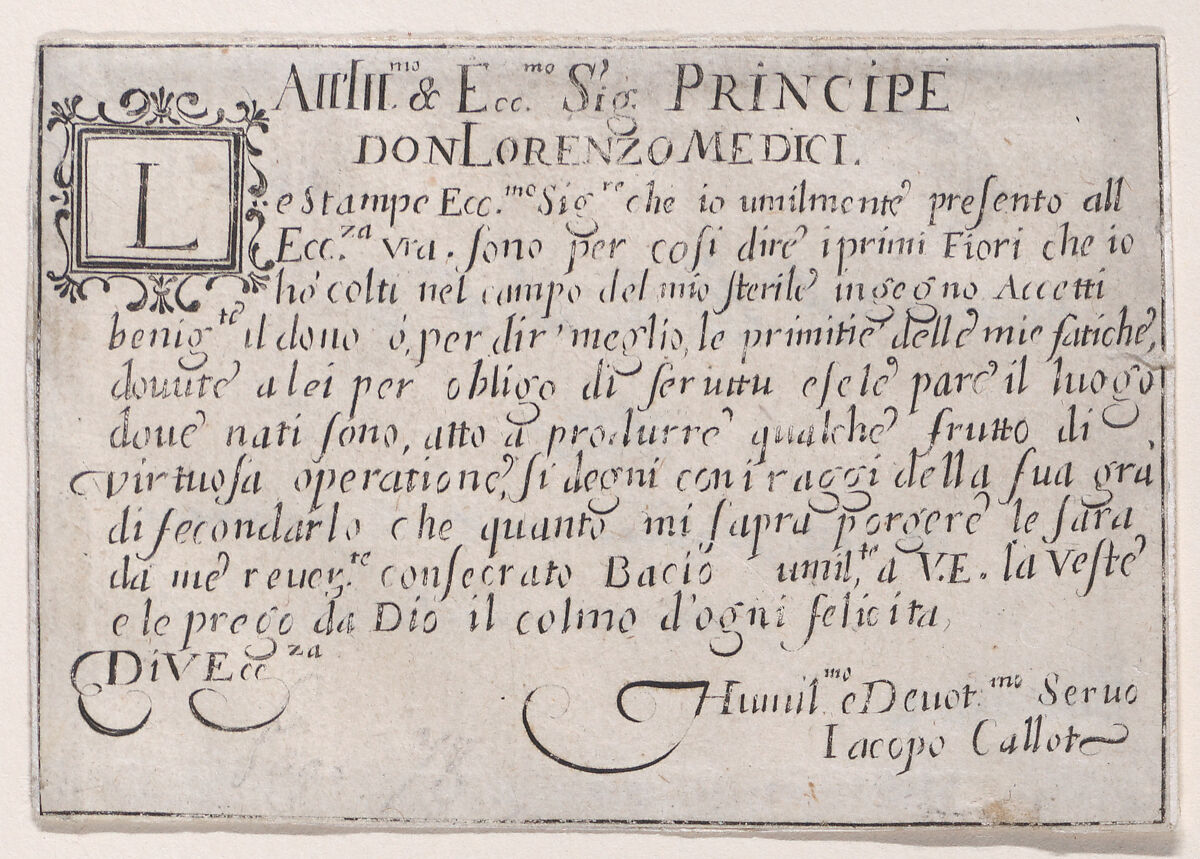 All Ill.mo & Ecc.mo Sig.r PRINCIPE
DON LORENZO MEDICI.
Le Stampe Ecc.mo Sig.re che io umilmente presento all
Ecc.za vra. sono per cosi dire i primi Fiori che io
hò colti nel campo del mio sterile ingegno Accetti
benig.te il dono ó, per dir' meglio, le primitie delle mie fatiche,
douute a lei per obligo di seruitu e se le pare il luogo
doue nati sono, atto a produrre qualche frutto di
virtuosa operatione, si degni con i raggi della sua gra
di fecondarlo che quanto mi sapra porgere le sara
da me reuer.te consecrato Bacio umil.te a V.E. la Veste
e le prego da Dio il colmo d'ogni felicita,
Di V Ecc.za
Humil.mo e Deuot.mo Seruo
Iacopo Callot